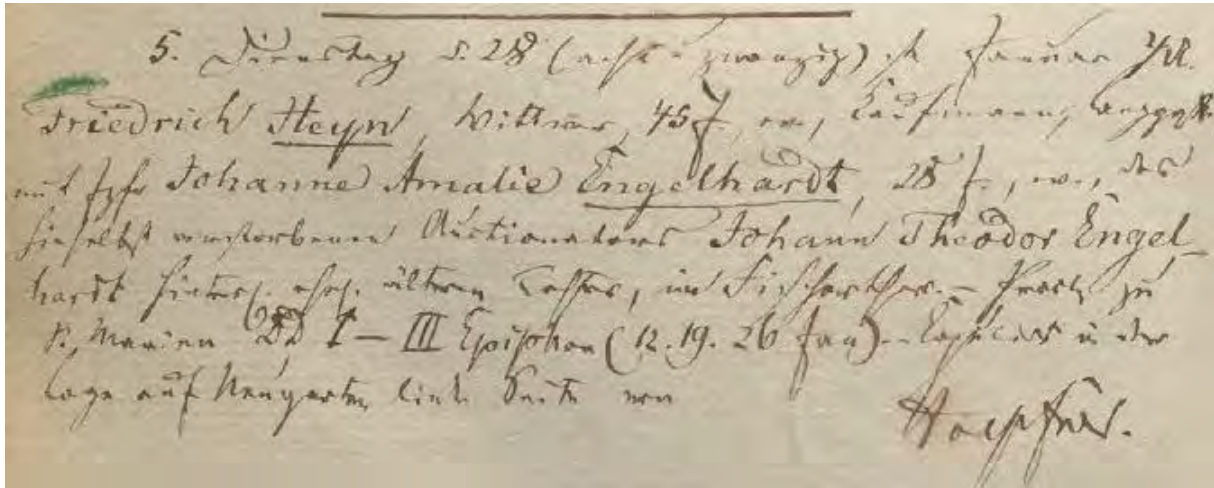 5. Dienstag d. 28 (acht u zwanzig) st Januar
Friedrich Heyn, Wittwer, 45 J., ev., Kaufmann,
mit Igfr Johanne Amalie Engelhardt, 28 J., ev., des
hieselbst verstorbenen Auctionators Johann Theodor Engel-
hardt hinterl. ehel. ältern Tochter, im Fischerthor. – zu
St. Marien I – III Epiphan (12. 19. 26 Jan) – in der
Loge auf Neugarten linke Seite von
Hoepfner.